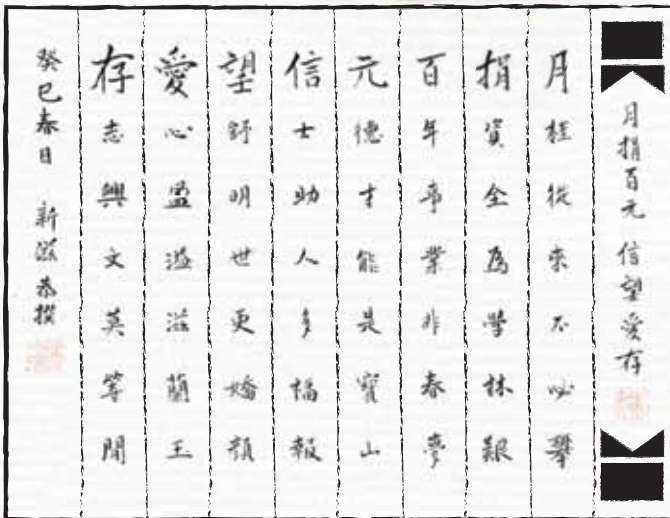 月捐百元 信望愛存
月桂從來不必攀
捐資全為學林艱
百年事業非春夢
元德才能是寶山
信士助人多福報
望舒明世更嬌顏
愛心盈溢滋蘭王
存志興文莫等閒
癸巳春日 新滋恭撰